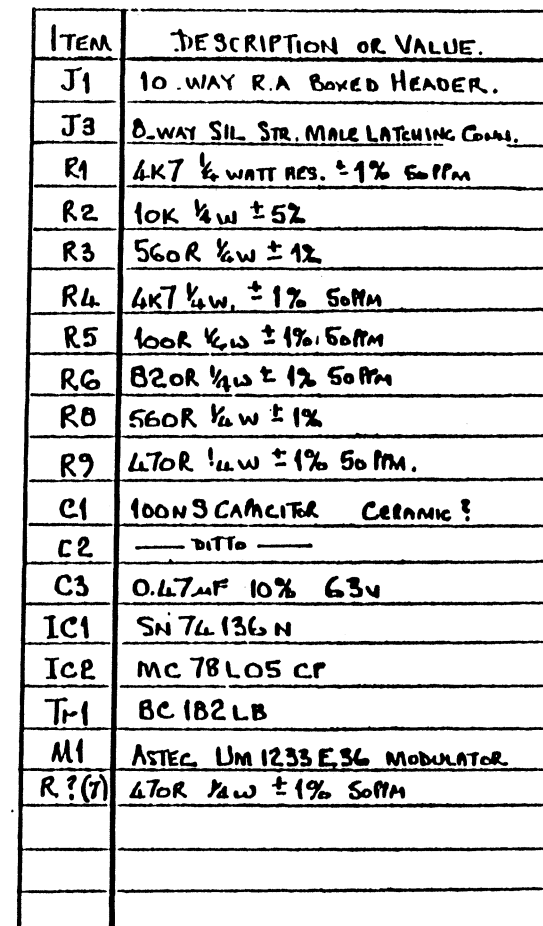 ITEM DESCRIPTION OR VALUE.
J1 10.WAY R.A BOXED HEADER.
J3 8-WAY SIL STR. MALE LATCHING CONN.
R1 4K7 1/4 WATT RES. ±1% 50PPM
R2 10K 1/4W ±5%
R3 560R 1/4W ±1%
R4 4K7 1/4W. ±1% 50PPM
R5 100R 1/4W ±1%.50PPM
R6 820R 1/4W ± 1% 50PPM
R8 560R 1/4W ±1%
R9 470R 1/4W ±1% 50PPM.
C1 100N S CAPACITOR CERAMIC?
C2 —— DITTO ——
C3 0.47µF 10% 63V
IC1 SN 74 136 N
IC2 MC 78L05 CP
Tr1 BC 182 LB
M1 ASTEC UM 1233 E36 MODULATOR
R?(7) 470R 1/4W ±1% 50PPM